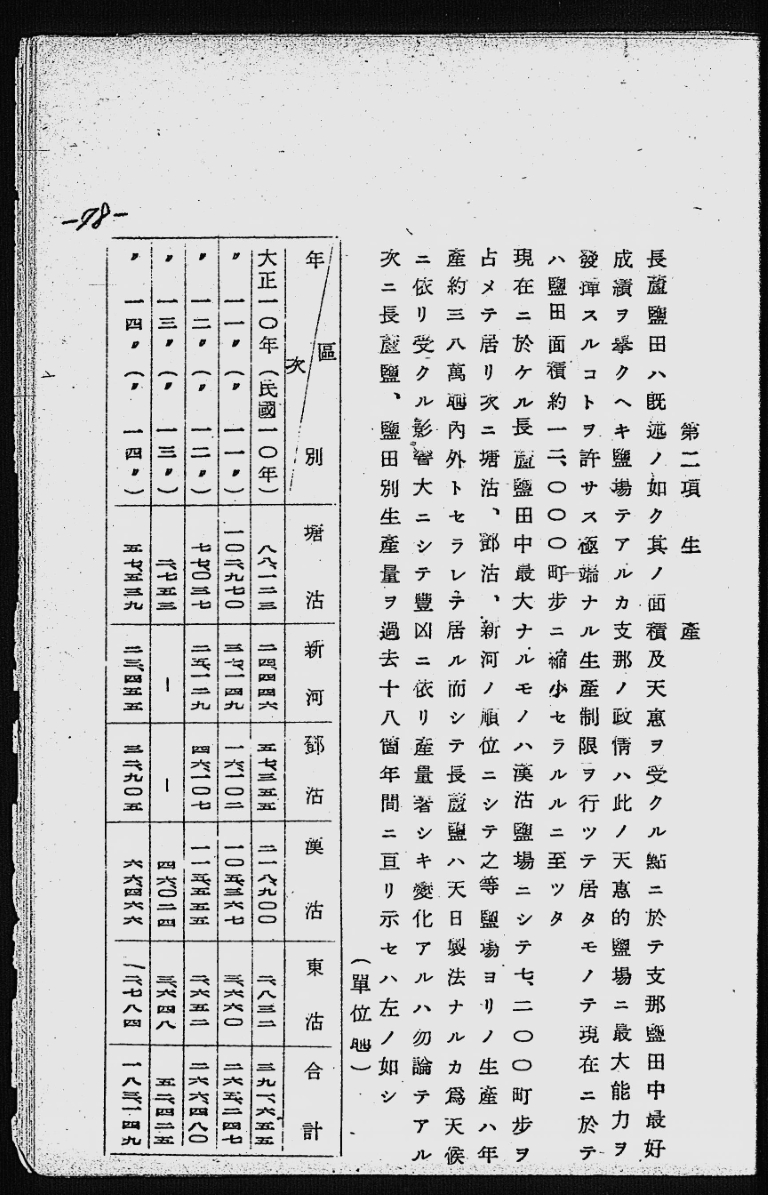 第二項　生　產
長蘆鹽田ハ既述ノ如ク其ノ面積及天惠ヲ受クル點ニ於テ支那鹽田中最好
成績ヲ擧クヘキ鹽場テアルカ支那ノ政情ハ此ノ天惠的鹽場ニ最大能力ヲ
發揮スルコトヲ許サス極端ナル生產制限ヲ行ツテ居タモノテ現在ニ於テ
ハ鹽田面積約一二、〇〇〇町步ニ縮小セラルルニ至ツタ
現在ニ於ケル長蘆鹽田中最大ナルモノハ漢沽鹽場ニシテ七、二〇〇町步ヲ
占メテ居リ次ニ塘沽、鄧沽、新河ノ順位ニシテ之等鹽場ヨリノ生產ハ年
產約三八萬瓲內外トセラレテ居ル而シテ長蘆鹽ハ天日製法ナルカ爲天候
ニ依リ受クル影響大ニシテ豐凶ニ依リ產量著シキ變化アルハ勿論テアル
次ニ長蘆鹽、鹽田別生產量ヲ過去十八箇年間ニ亘リ示セハ左ノ如シ
（單位瓲）
年次／區別　塘沽　新河　鄧沽　漢沽　東沽　合計
大正一〇年（民國一〇年）　八八、一二三　二四、四四六　五七、三五五　二一八、九〇〇　二、八三二　三九一、六五五
〃一一〃（〃一一〃）　一〇二、九七〇　三七、一四九　一六、一〇二　一〇五、三六七　三、六六〇　二六五、二四七
〃一二〃（〃一二〃）　七七、〇三七　二五、一二九　四六、一〇七　一一五、五五五　二、六五二　二六六、四八〇
〃一三〃（〃一三〃）　二、七五三　－　－　四六、〇二四　三、六四八　五二、四二五
〃一四〃（〃一四〃）　五七、五三九　二三、四五五　三二、九〇五　六六、四六六　二、七八四　一八三、一四九
-78-